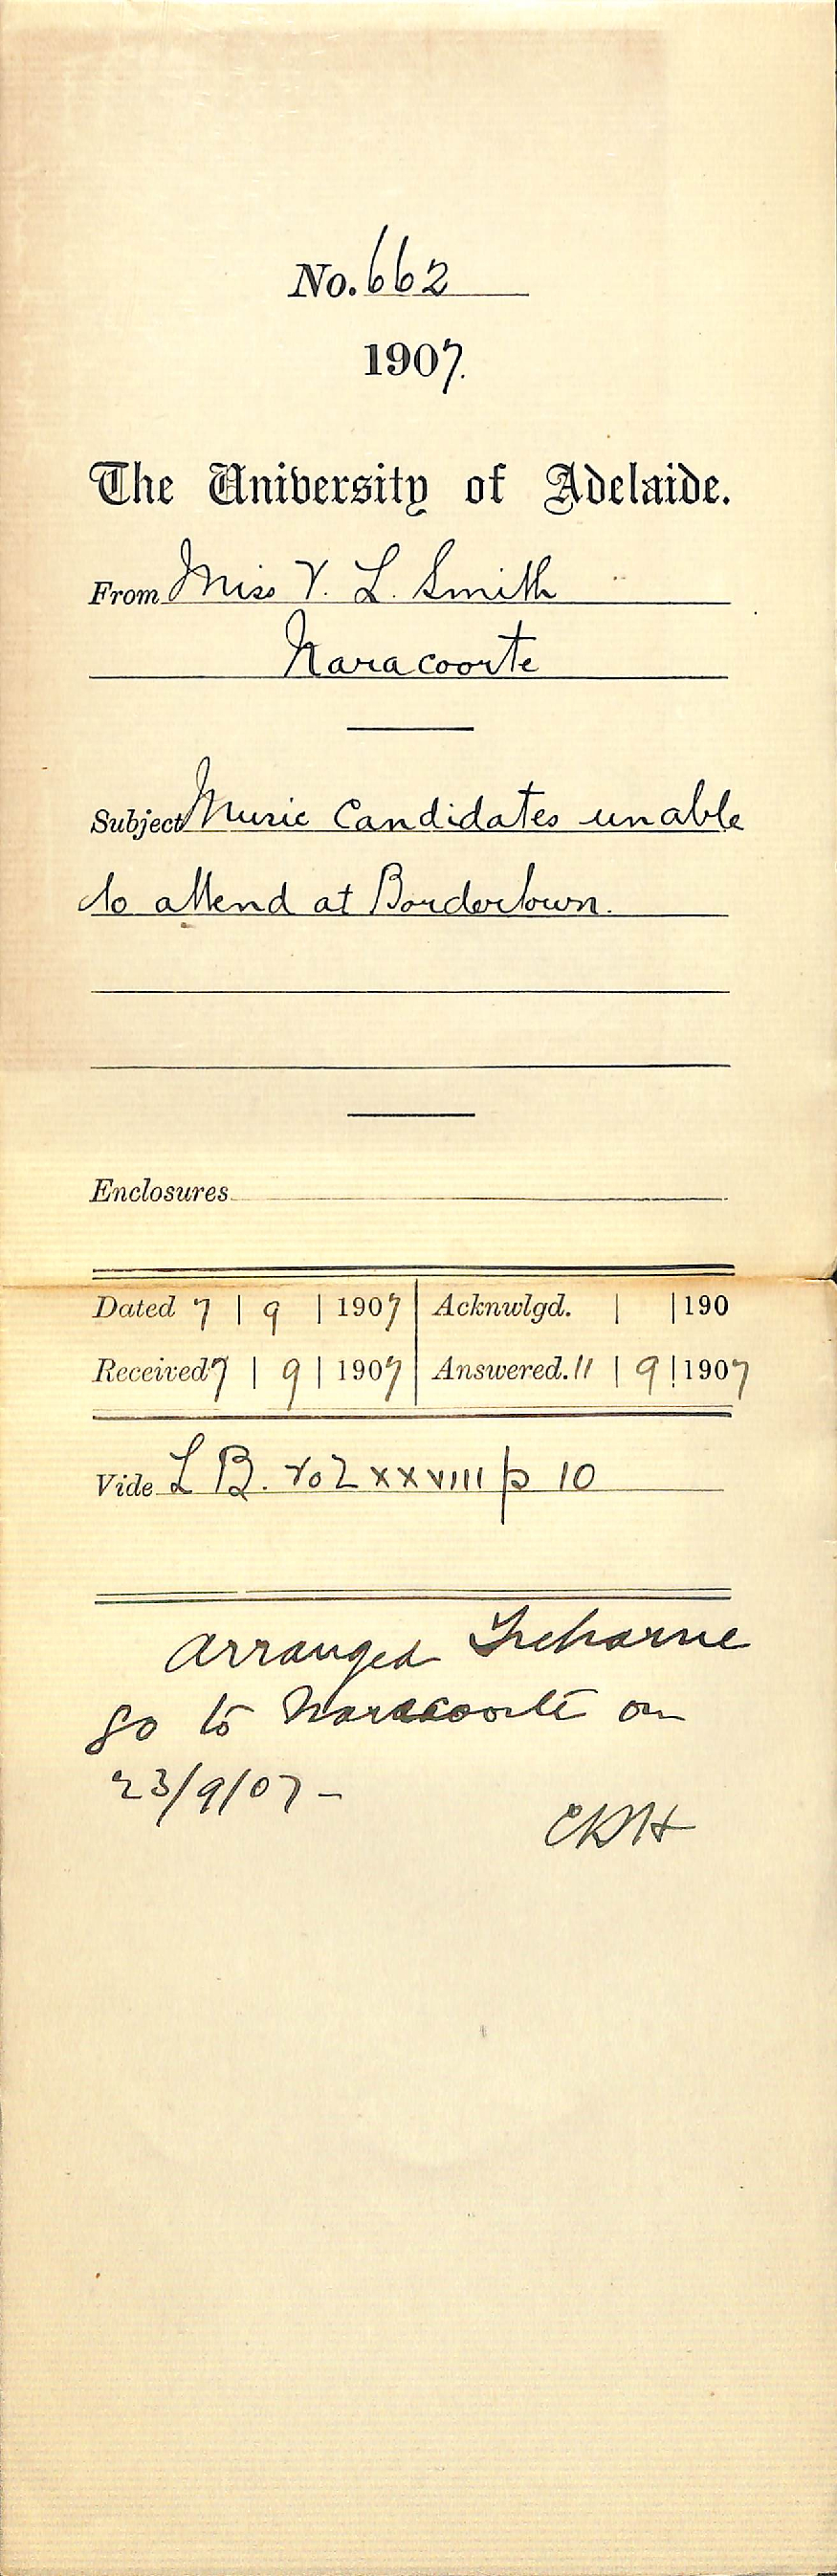 No. 662
1907.
The University of Adelaide.
From Miss V. L. Smith
Naracoorte
Subject Music Candidates unable
to attend at Bordertown.
Enclosures
Dated 7 | 9 | 1907 | Acknwlgd. | | 190
Received 7 | 9 | 1907 | Answered. 11 | 9 | 1907
Vide L B. Vol xxviii p 10
Arranged Treharne
go to Naracoorte on
23/9/07 -